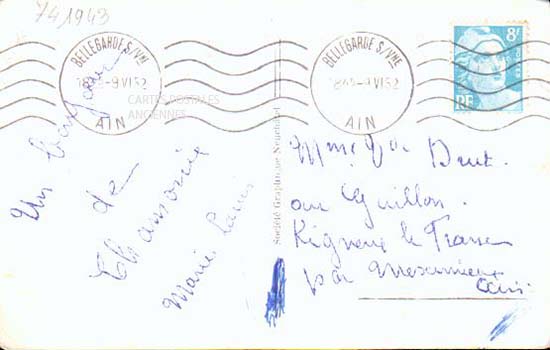 741943
BELLEGARDE S/VNE
18 45 -9 VI 52
AIN
BELLEGARDE S/VNE
1845-9 VI 52
AIN
8F
RF
CARTES POSTALES
ANCIENNES
Un bonjour
de
Chamonix
Marie Louise
Société Graphique Neuchâtel
Mme Vve
au Guillon
Rigneux le Franc
par Meximieux
Ain